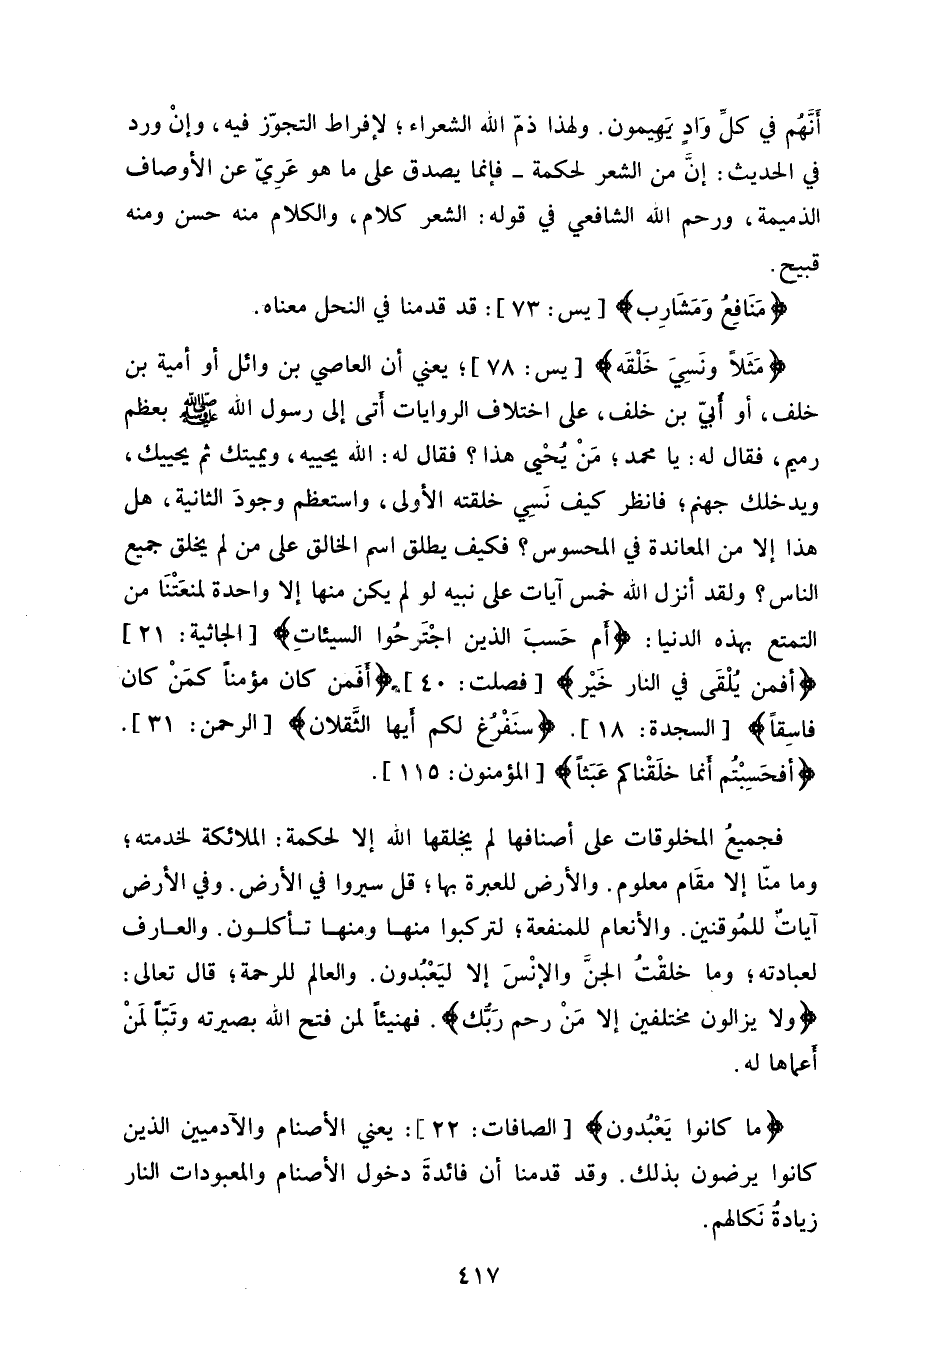 أَنَّهُم في كلِّ وَادٍ يَهيمون. ولهذا ذمّ الله الشعراء؛ لإفراط التجوّز فيه، وإنْ ورد
في الحديث: إنَّ من الشعر لحكمة - فإنما يصدق على ما هو عَرِيّ عن الأوصاف
الذميمة، ورحم الله الشافعي في قوله: الشعر كلام، والكلام منه حسن ومنه
قبيح.
﴿مَنَافِعُ وَمَشَارِب﴾ [يس: ٧٣]: قد قدمنا في النحل معناه.
﴿مَثَلاً ونَسِيَ خَلْقَه﴾ [يس: ٧٨]؛ يعني أن العاصي بن وائل أو أمية بن
خلف، أو أُبيّ بن خلف، على اختلاف الروايات أَتى إلى رسول الله ﷺ بعظم
رميم، فقال له: يا محمد؛ مَنْ يُحْيي هذا؟ فقال له: الله يحييه، ويميتك ثم يحييك،
ويدخلك جهنم؛ فانظر كيف نَسِي خلقته الأولى، واستعظم وجودَ الثانية، هل
هذا إلا من المعاندة في المحسوس؟ فكيف يطلق اسم الخالق على من لم يخلق جميع
الناس؟ ولقد أنزل الله خمس آيات على نبيه لو لم يكن منها إلا واحدة لمنعَتْنَا من
التمتع بهذه الدنيا: ﴿أَم حَسبَ الذين اجْتَرحُوا السيئاتِ﴾ [الجاثية: ٢١]
﴿أفمن يُلْقَى في النار خَيْر﴾ [فصلت: ٤٠]. ﴿أَفَمن كان مؤمناً كمَنْ كان
فاسِقاً﴾ [السجدة: ١٨]. ﴿سنَفْرُغ لكم أَيها الثَّقلان﴾ [الرحمن: ٣١].
﴿أفحَسِبْتُم أَنما خلَقْناكم عَبَثاً﴾ [المؤمنون: ١١٥].
فجميعُ المخلوقات على أصنافها لم يخلقها الله إلا لحكمة: الملائكة لخدمته؛
وما منّا إلا مقَام معلوم. والأرض للعبرة بها؛ قل سيروا في الأرض. وفي الأرض
آياتٌ للمُوقنين. والأنعام للمنفعة؛ لتركبوا منهـا ومنهـا تـأكلـون. والعـارف
لعبادته؛ وما خلقْتُ الجنَّ والإنْسَ إلا ليَعْبُدون. والعالم للرحمة؛ قال تعالى:
﴿ولا يزالون مختلفين إلا مَنْ رحم رَبُّك﴾. فهنيئاً لمن فتح الله بصيرته وتَبّاً لمَنْ
أَعماها له.
﴿ما كانوا يَعْبُدون﴾ [الصافات: ٢٢]: يعني الأصنام والآدميين الذين
كانوا يرضون بذلك. وقد قدمنا أن فائدةَ دخول الأصنام والمعبودات النار
زيادةُ نَكالهم.
٤١٧